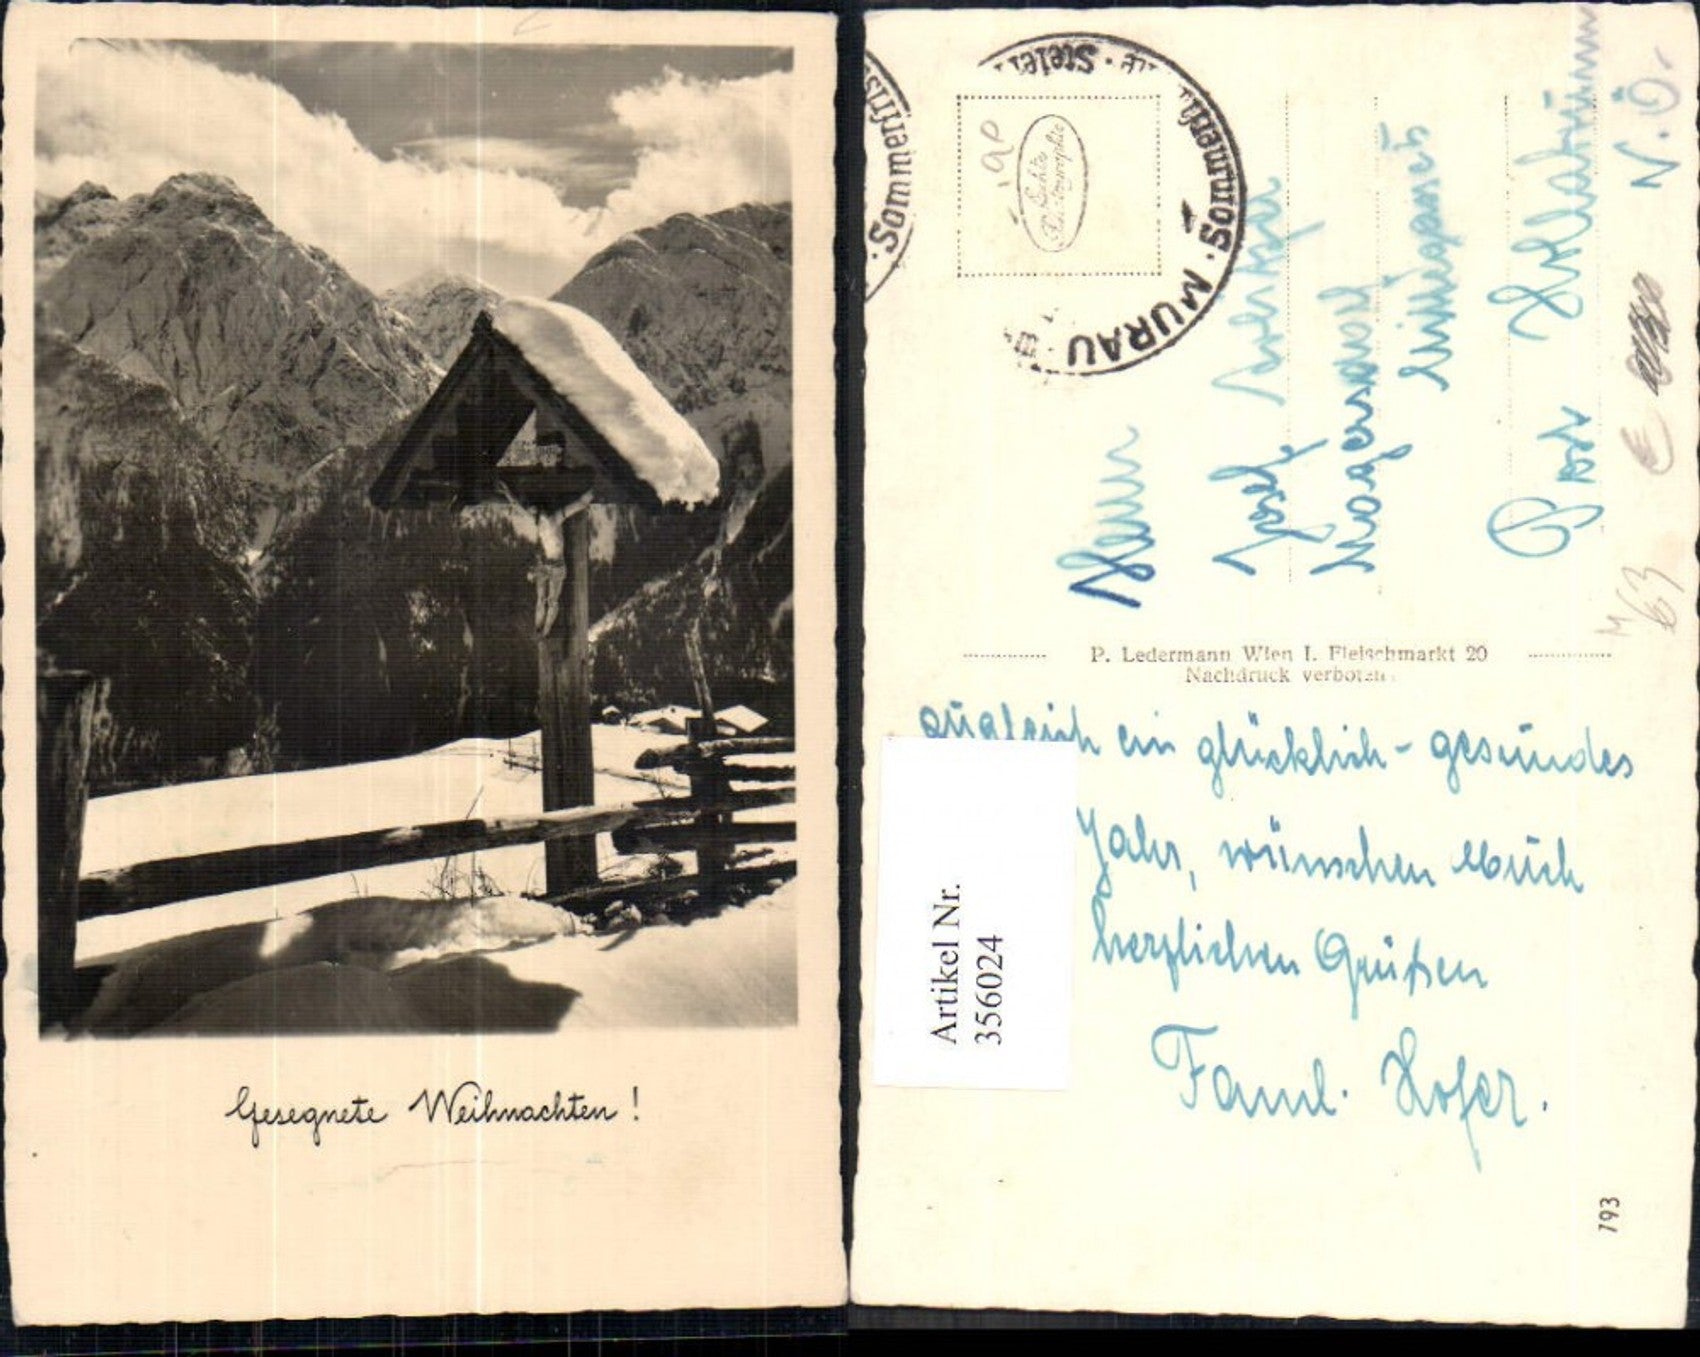 Gesegnete Weihnachten!
Sommerfris
MURAU
Sommerfr
Steier
Echte
Photographie
Herrn
Josef
Post
N.Ö.
P. Ledermann Wien I. Fleischmarkt 20
Nachdruck verboten
zugleich ein glücklich - gesundes
Jahr, wünschen Euch
herzlichen Grüßen
Faml. Hofer.
Artikel Nr.
356024
M63
793